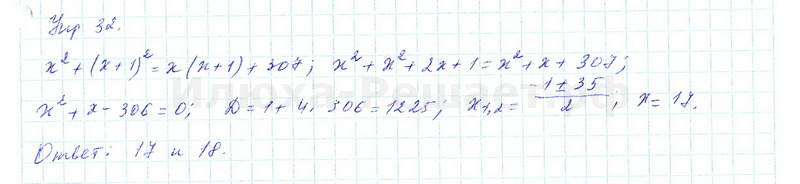 Упр 32.
x² + (x+1)² = x(x+1) + 307; x² + x² + 2x + 1 = x² + x + 307;
x² + x - 306 = 0; D = 1 + 4 · 306 = 1225; x₁,₂ = (-1 ± 35)/2; x = 17.
Ответ: 17 и 18.
Илюха-Решает.рф